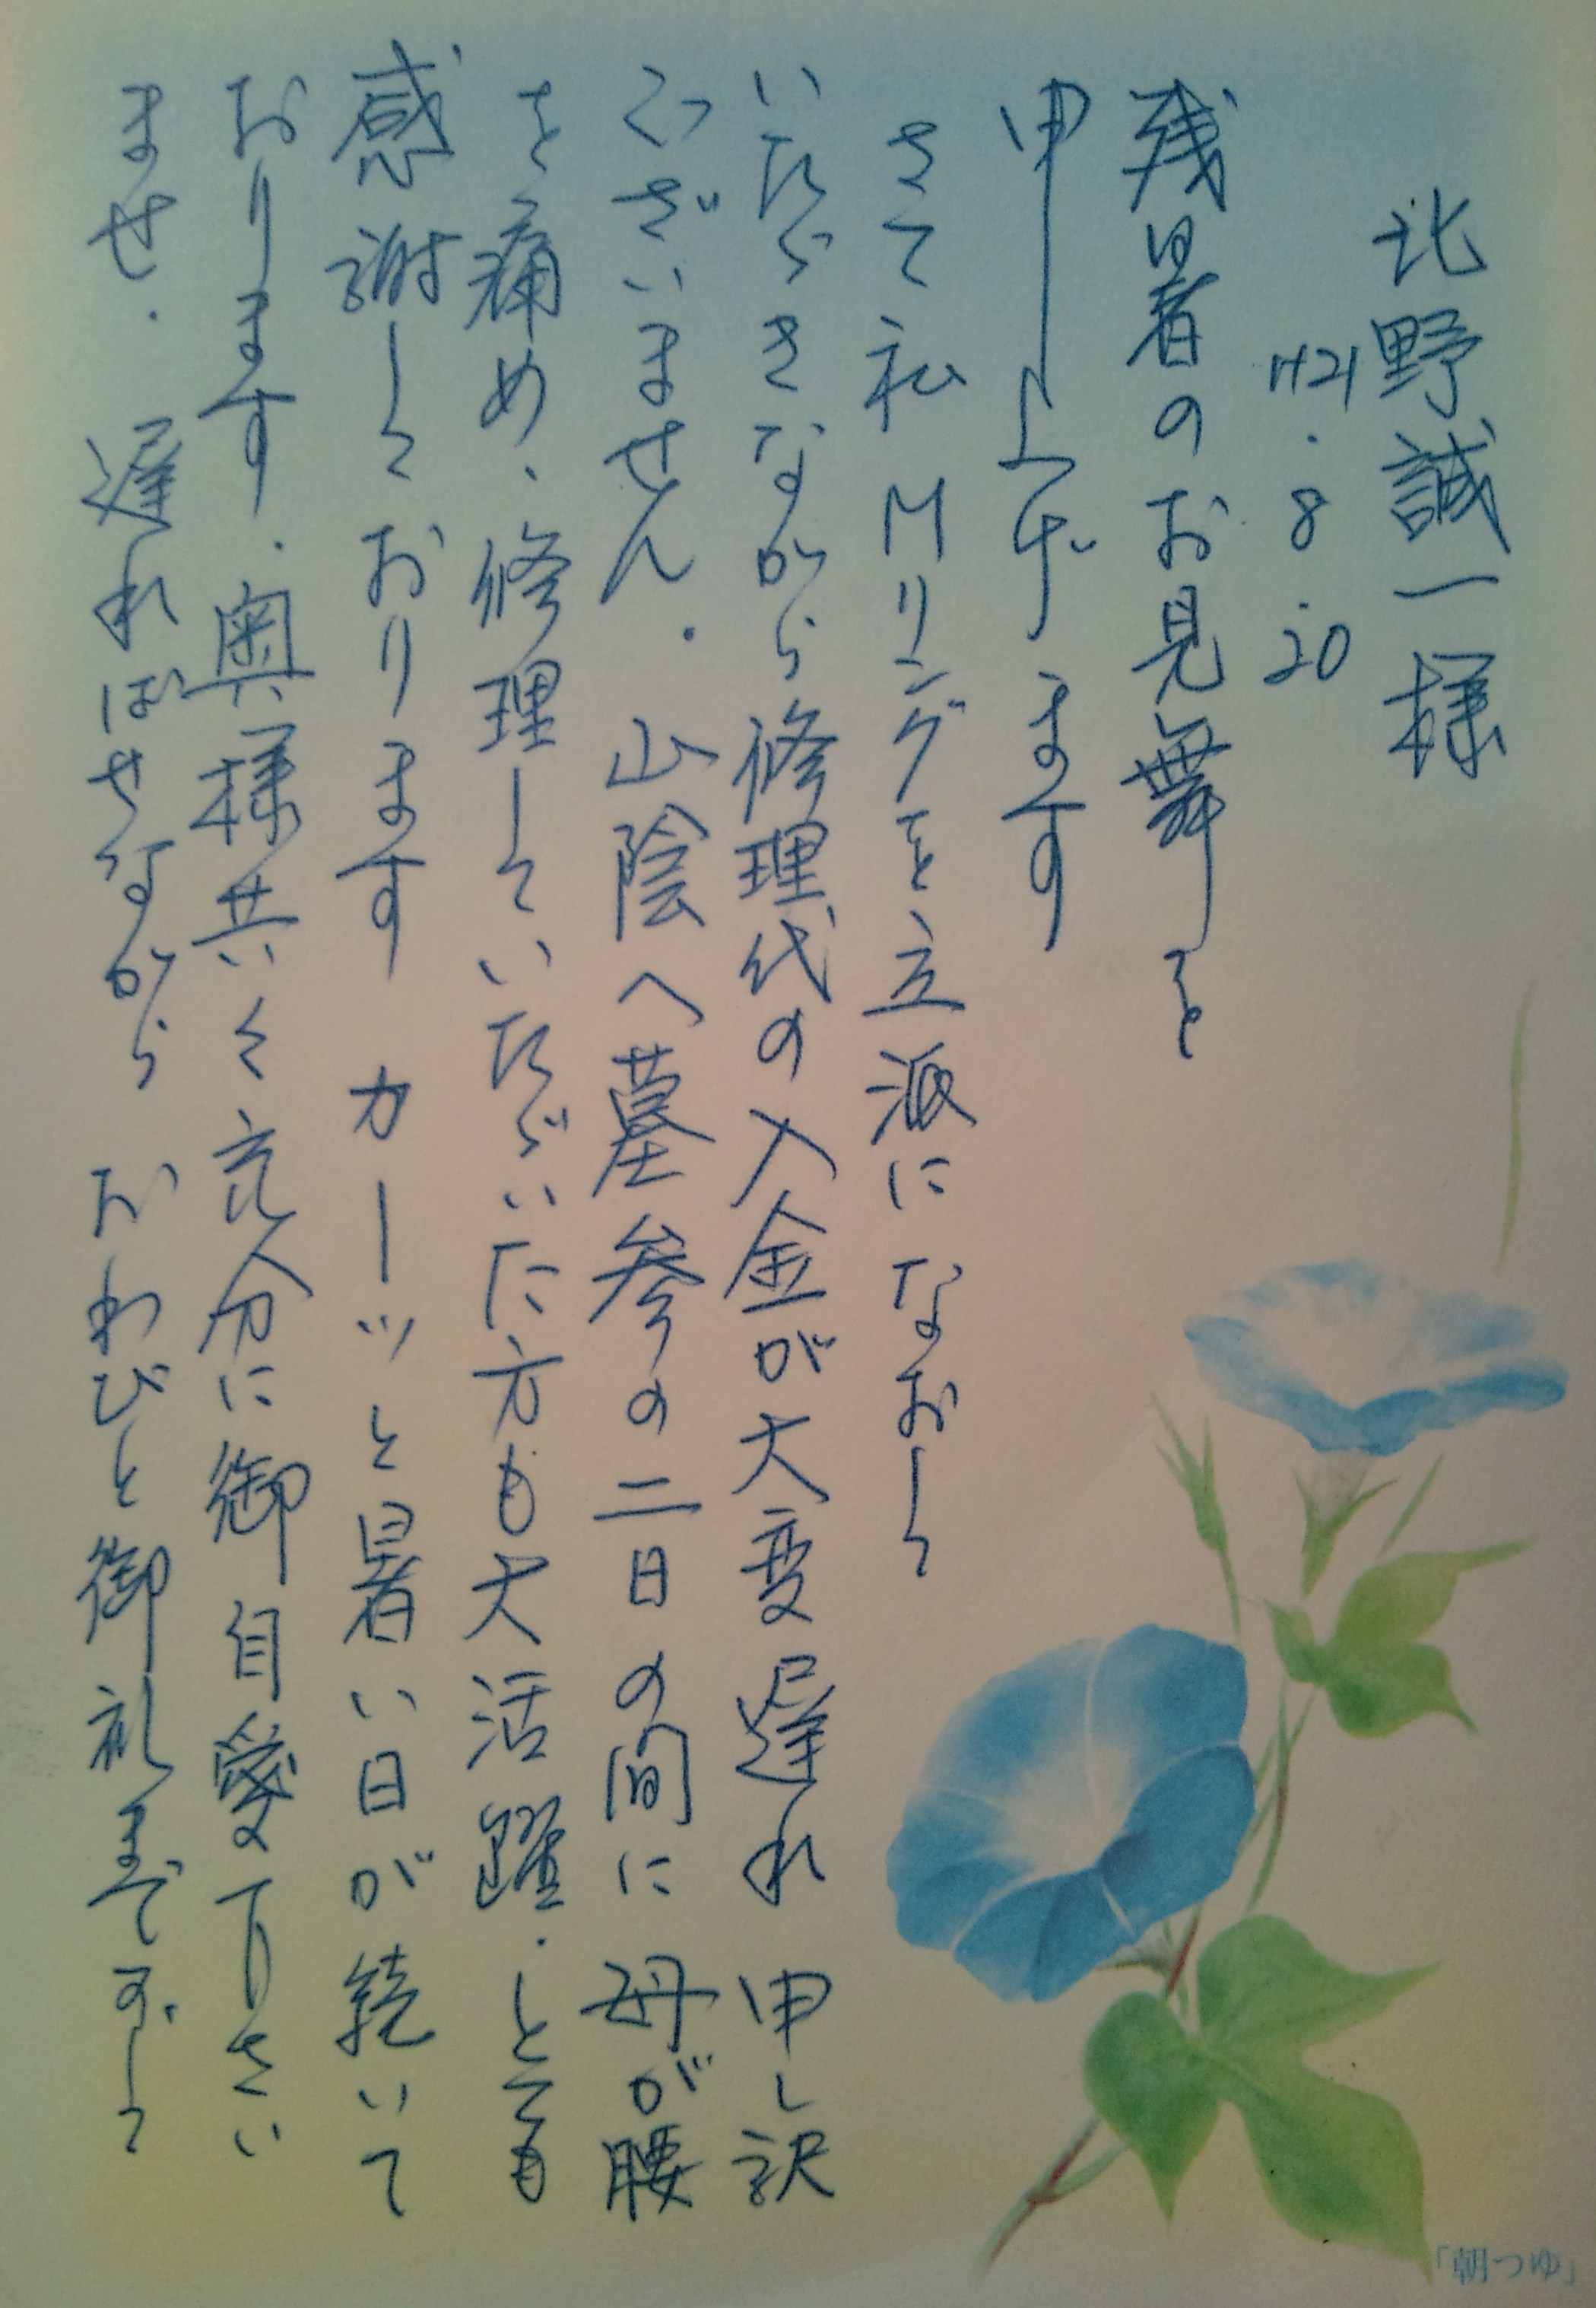 北野誠一様
H21.8.20
残暑のお見舞を
申し上げます
さて私Mリングを立派になおして
いただきながら修理代の入金が大変遅れ 申し訳
ございません. 山陰へ墓参の二日の間に 母が腰
を痛め、修理していただいた方も大活躍.とても
感謝しております カーッと暑い日が続いて
おります.奥様共々充分に御自愛下さい
ませ. 遅ればせながら おわびと御礼まで
「朝つゆ」